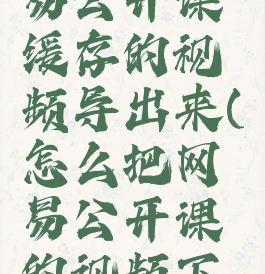 易公开课
缓存的视
频导出来(
怎么把网
易公开课
的视频下